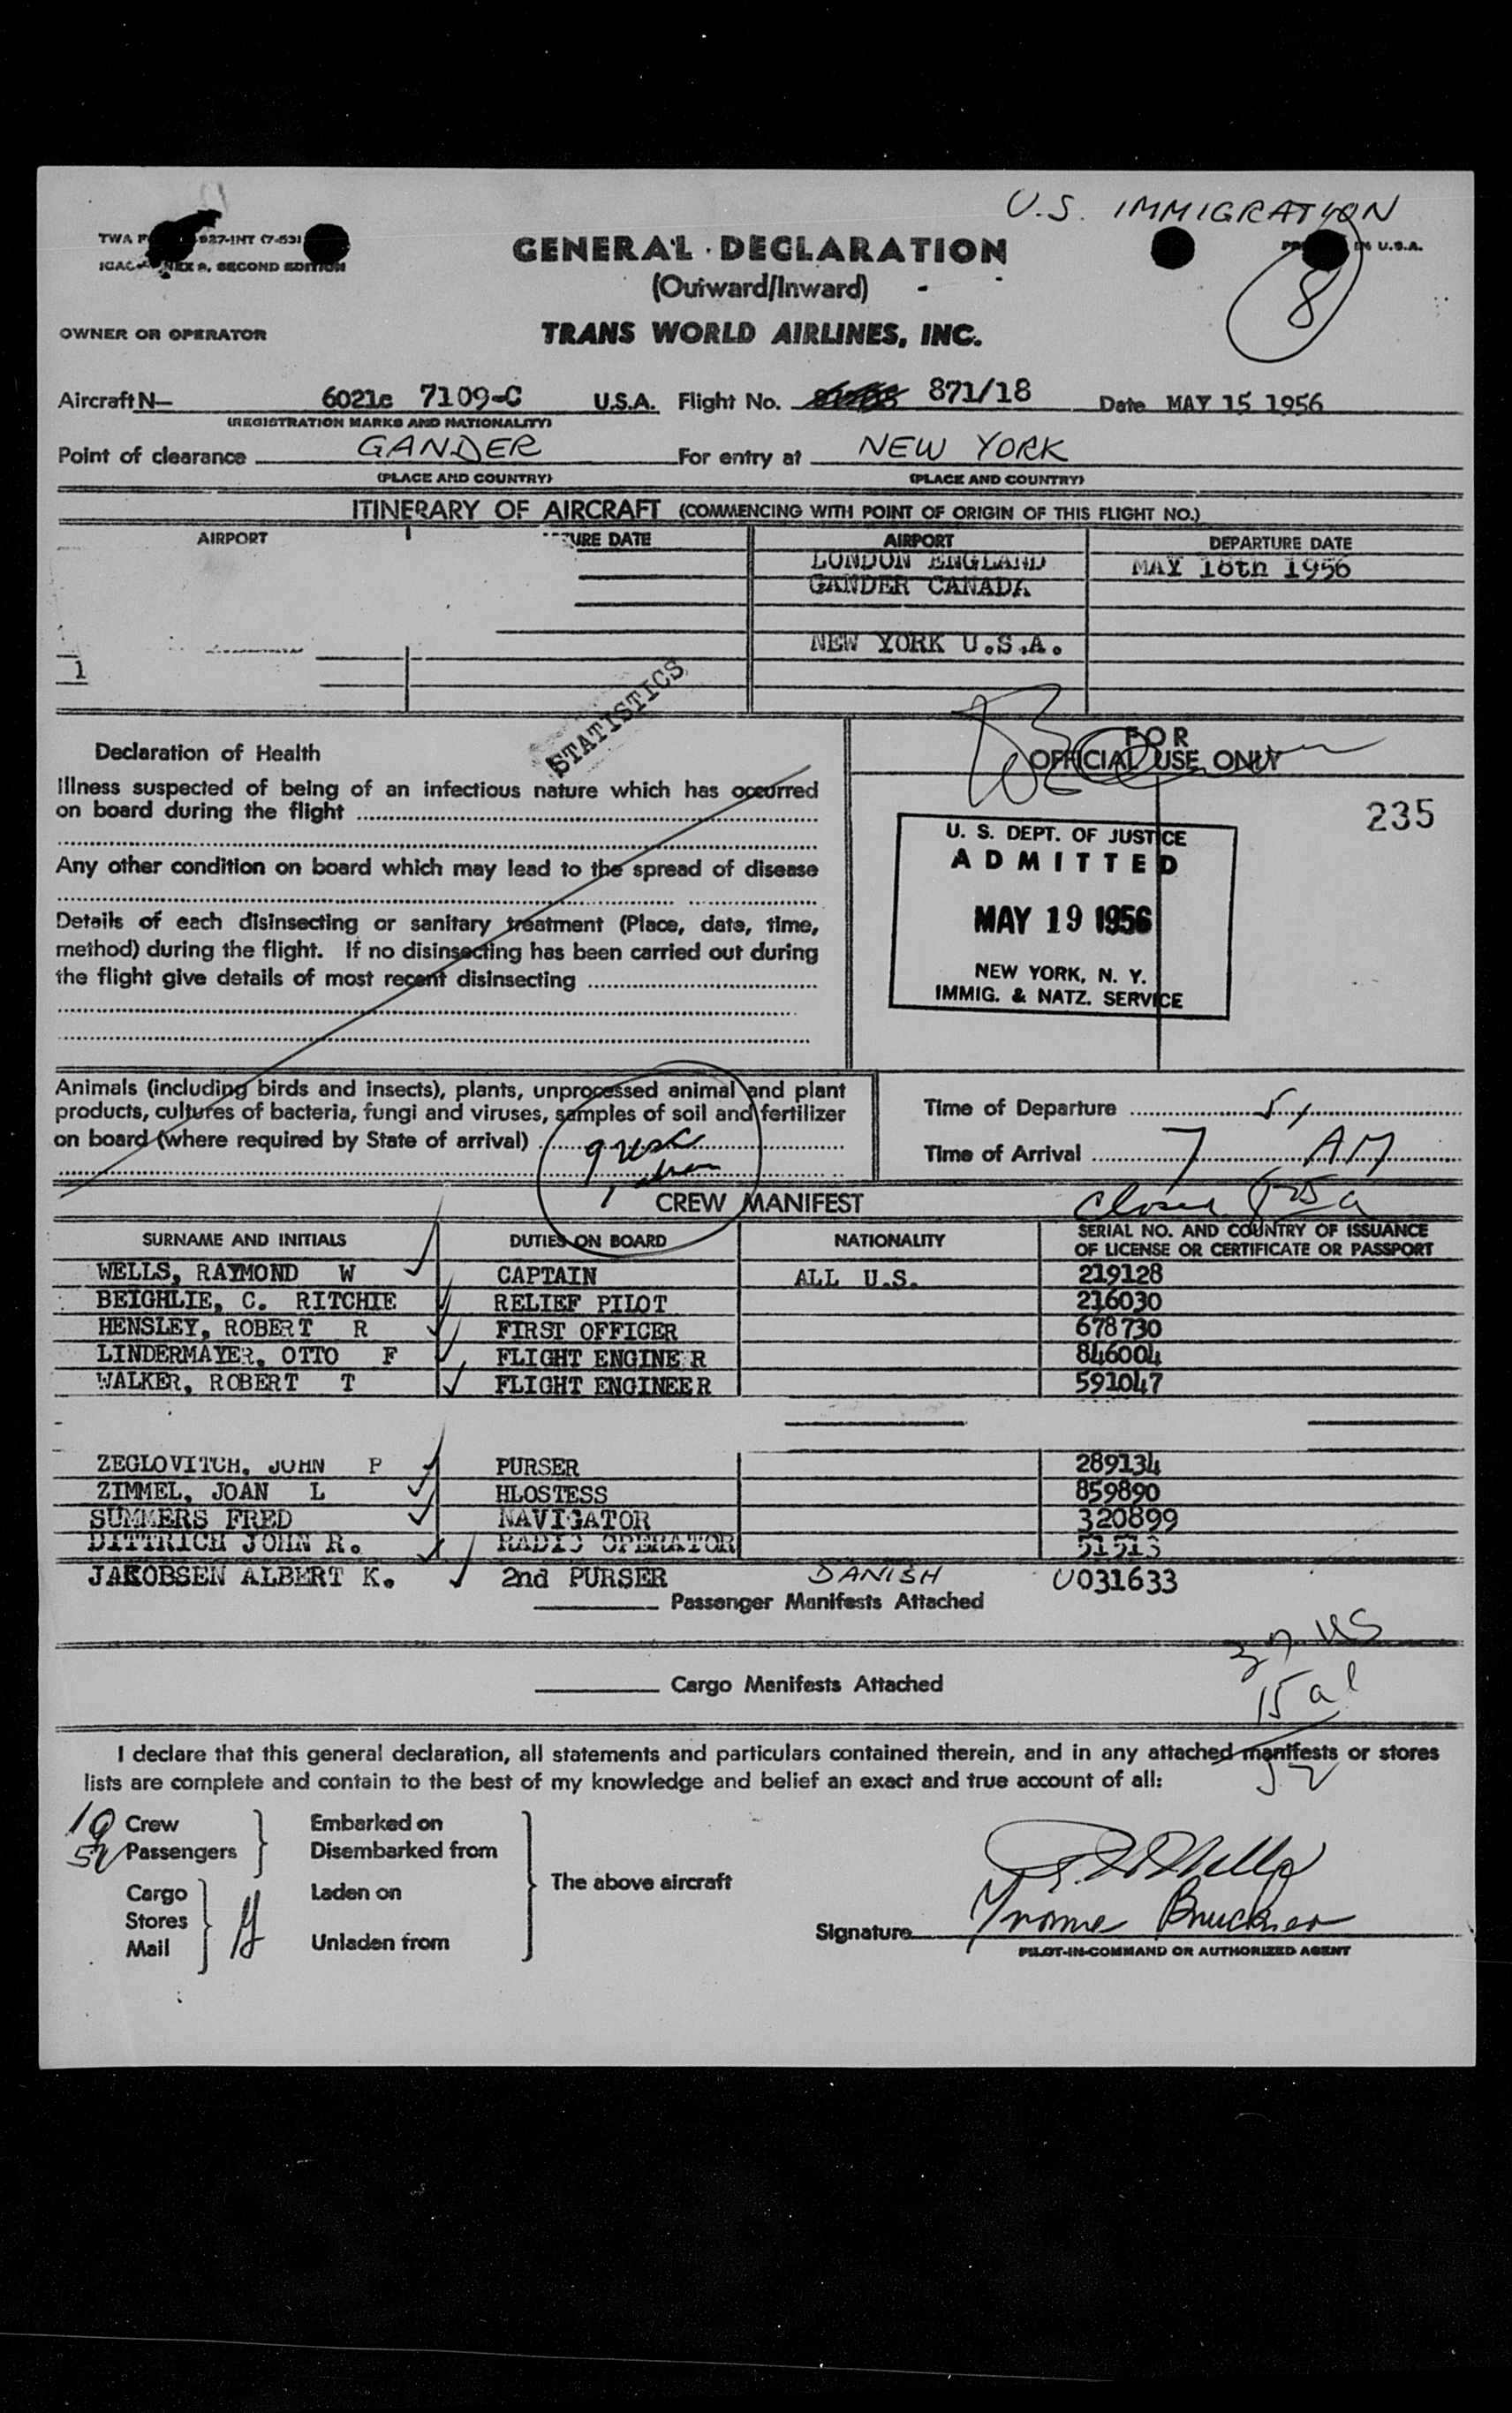 U.S. IMMIGRATION
TWA F 927-INT (7-53)
IN U.S.A.
SECOND EDITION
8
GENERAL DECLARATION
(Outward/Inward)
OWNER OR OPERATOR
TRANS WORLD AIRLINES, INC.
Aircraft N— 6021c 7109-C U.S.A. Flight No. 871/18 Date MAY 15 1956
(REGISTRATION MARKS AND NATIONALITY)
Point of clearance GANDER For entry at NEW YORK
(PLACE AND COUNTRY) (PLACE AND COUNTRY)
ITINERARY OF AIRCRAFT (COMMENCING WITH POINT OF ORIGIN OF THIS FLIGHT NO.)
AIRPORT TURE DATE AIRPORT DEPARTURE DATE
LONDON ENGLAND MAY 18th 1956
GANDER CANADA
NEW YORK U.S.A.
1
STATISTICS
FOR
OFFICIAL USE ONLY
235
Declaration of Health
Illness suspected of being of an infectious nature which has occurred
on board during the flight
Any other condition on board which may lead to the spread of disease
Details of each disinsecting or sanitary treatment (Place, date, time,
method) during the flight. If no disinsecting has been carried out during
the flight give details of most recent disinsecting
U. S. DEPT. OF JUSTICE
ADMITTED
MAY 19 1956
NEW YORK, N. Y.
IMMIG. & NATZ. SERVICE
Animals (including birds and insects), plants, unprocessed animal and plant
products, cultures of bacteria, fungi and viruses, samples of soil and fertilizer
on board (where required by State of arrival)
Time of Departure
Time of Arrival 7 AM
CREW MANIFEST
SURNAME AND INITIALS DUTIES ON BOARD NATIONALITY SERIAL NO. AND COUNTRY OF ISSUANCE
OF LICENSE OR CERTIFICATE OR PASSPORT
WELLS, RAYMOND W CAPTAIN ALL U.S. 219128
BEIGHLIE, C. RITCHIE RELIEF PILOT 216030
HENSLEY, ROBERT R FIRST OFFICER 678730
LINDERMAYER, OTTO F FLIGHT ENGINEER 846004
WALKER, ROBERT T FLIGHT ENGINEER 591047
ZEGLOVITCH, JOHN P PURSER 289134
ZIMMEL, JOAN L HLOSTESS 859890
SUMMERS FRED NAVIGATOR 320899
DITTRICH JOHN R. RADIO OPERATOR 51513
JAKOBSEN ALBERT K. 2nd PURSER DANISH U031633
Passenger Manifests Attached
37 US
Cargo Manifests Attached
15 al
I declare that this general declaration, all statements and particulars contained therein, and in any attached manifests or stores
lists are complete and contain to the best of my knowledge and belief an exact and true account of all:
52
Crew Embarked on
52 Passengers Disembarked from
The above aircraft
Cargo Laden on
Stores
Mail Unladen from
Signature Yvonne Bruckner
PILOT-IN-COMMAND OR AUTHORIZED AGENT